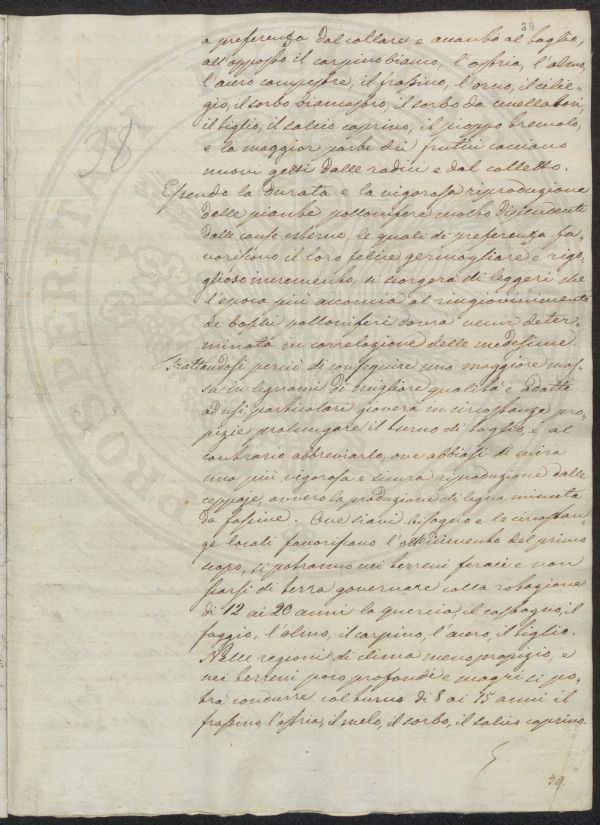 39
38
a preferenza dal collare e accanto al taglio,
all'opposto il carpino bianco, l'ostria, l'olmo,
l'acero campestre, il frassino, l'orno, il cilie-
gio, il sorbo biancastro, il sorbo da uccellatori,
il tiglio, il salcio caprino, il pioppo tremolo,
e la maggior parte dei frutici cacciano
nuovi getti dalle radici e dal colletto.
Essendo la durata e la vigorosa riproduzione
delle piante pollonifere molto dipendente
dalle cause esterne, le quali di preferenza fa-
voriscono il loro felice germogliare e rigo-
glioso incremento, si scorgerà di leggeri che
l'epoca più acconcia al ringiovinimento
de' boschi polloniferi dovrà venir deter-
minata in correlazione delle medesime.
Trattandosi perciò di conseguire una maggiore mas-
sa in legnami di migliore qualità e adatti
ad usi particolari gioverà in circostanze pro-
pizie prolungare il turno di taglio, e al
contrario abbreviarlo, ove abbiasi di mira
una più vigorosa e sicura riproduzione dalle
ceppaje, ovvero la produzione di legna minuta
da fascine. Ove siavi bisogno e le circostan-
ze locali favoriscano l'ottenimento del primo
scopo, si potranno nei terreni feraci e non
scarsi di terra governare colla rotazione
di 12 ai 20 anni la quercia, il castagno, il
faggio, l'olmo, il carpino, l'acero, il tiglio.
Nelle regioni di clima meno propizio, e
nei terreni poco profondi e magri si po-
trà condurre col turno di 8 ai 15 anni il
frassino, l'ostria, il melo, il sorbo, il salcio caprino.
39.
PROSPERITA